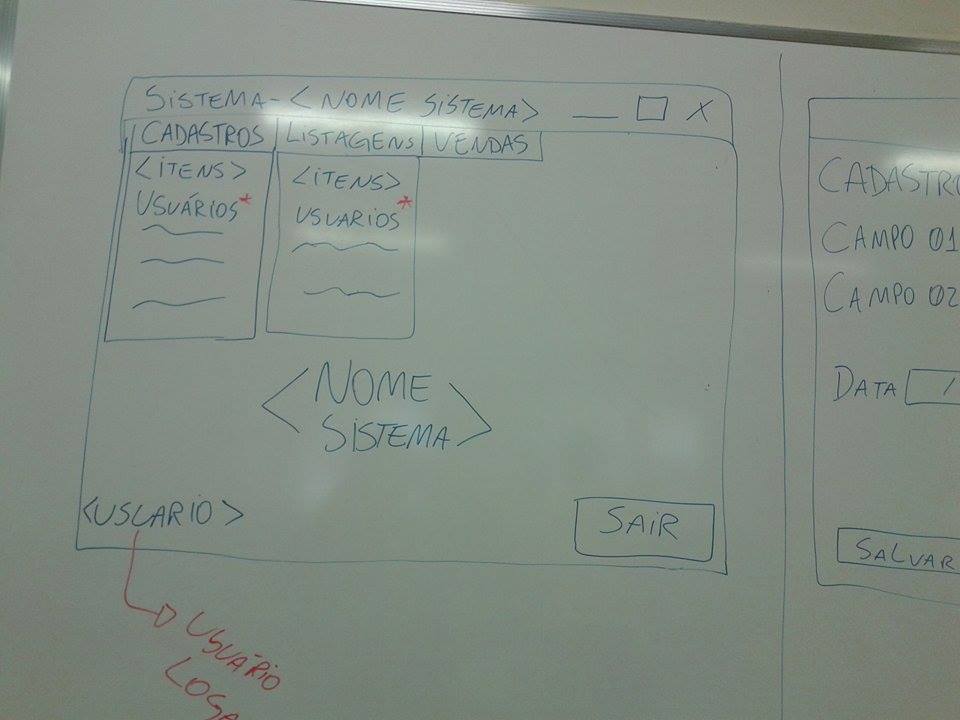 SISTEMA - < NOME SISTEMA> __ □ X
CADASTROS LISTAGENS VENDAS
<ITENS>
USUÁRIOS*
<ITENS>
USUARIOS*
< NOME
SISTEMA >
<USUARIO>
SAIR
USUÁRIO
LOGA
CADASTRO
CAMPO 01
CAMPO 02
DATA /
SALVAR